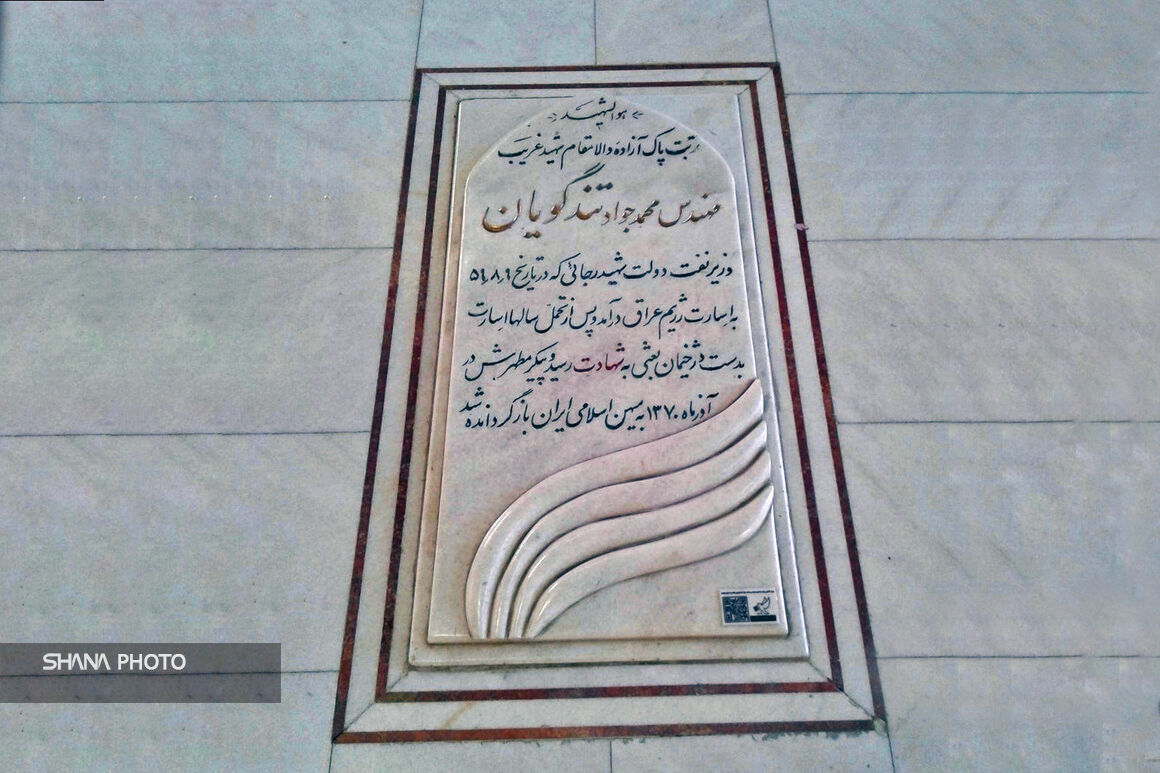 هوالشهید
تربت پاک آزادهٔ والامقام شهید غریب
مهندس محمدجواد تندگویان
وزیر نفت دولت شهید رجائی که در تاریخ ۵۹٫۸٫۹
به اسارت رژیم عراق درآمد و پس از تحمل سالها اسارت
بدست دژخیمان بعثی به شهادت رسید و پیکر مطهرش در
آذرماه ۱۳۷۰ به میهن اسلامی ایران بازگردانده شد
SHANA PHOTO